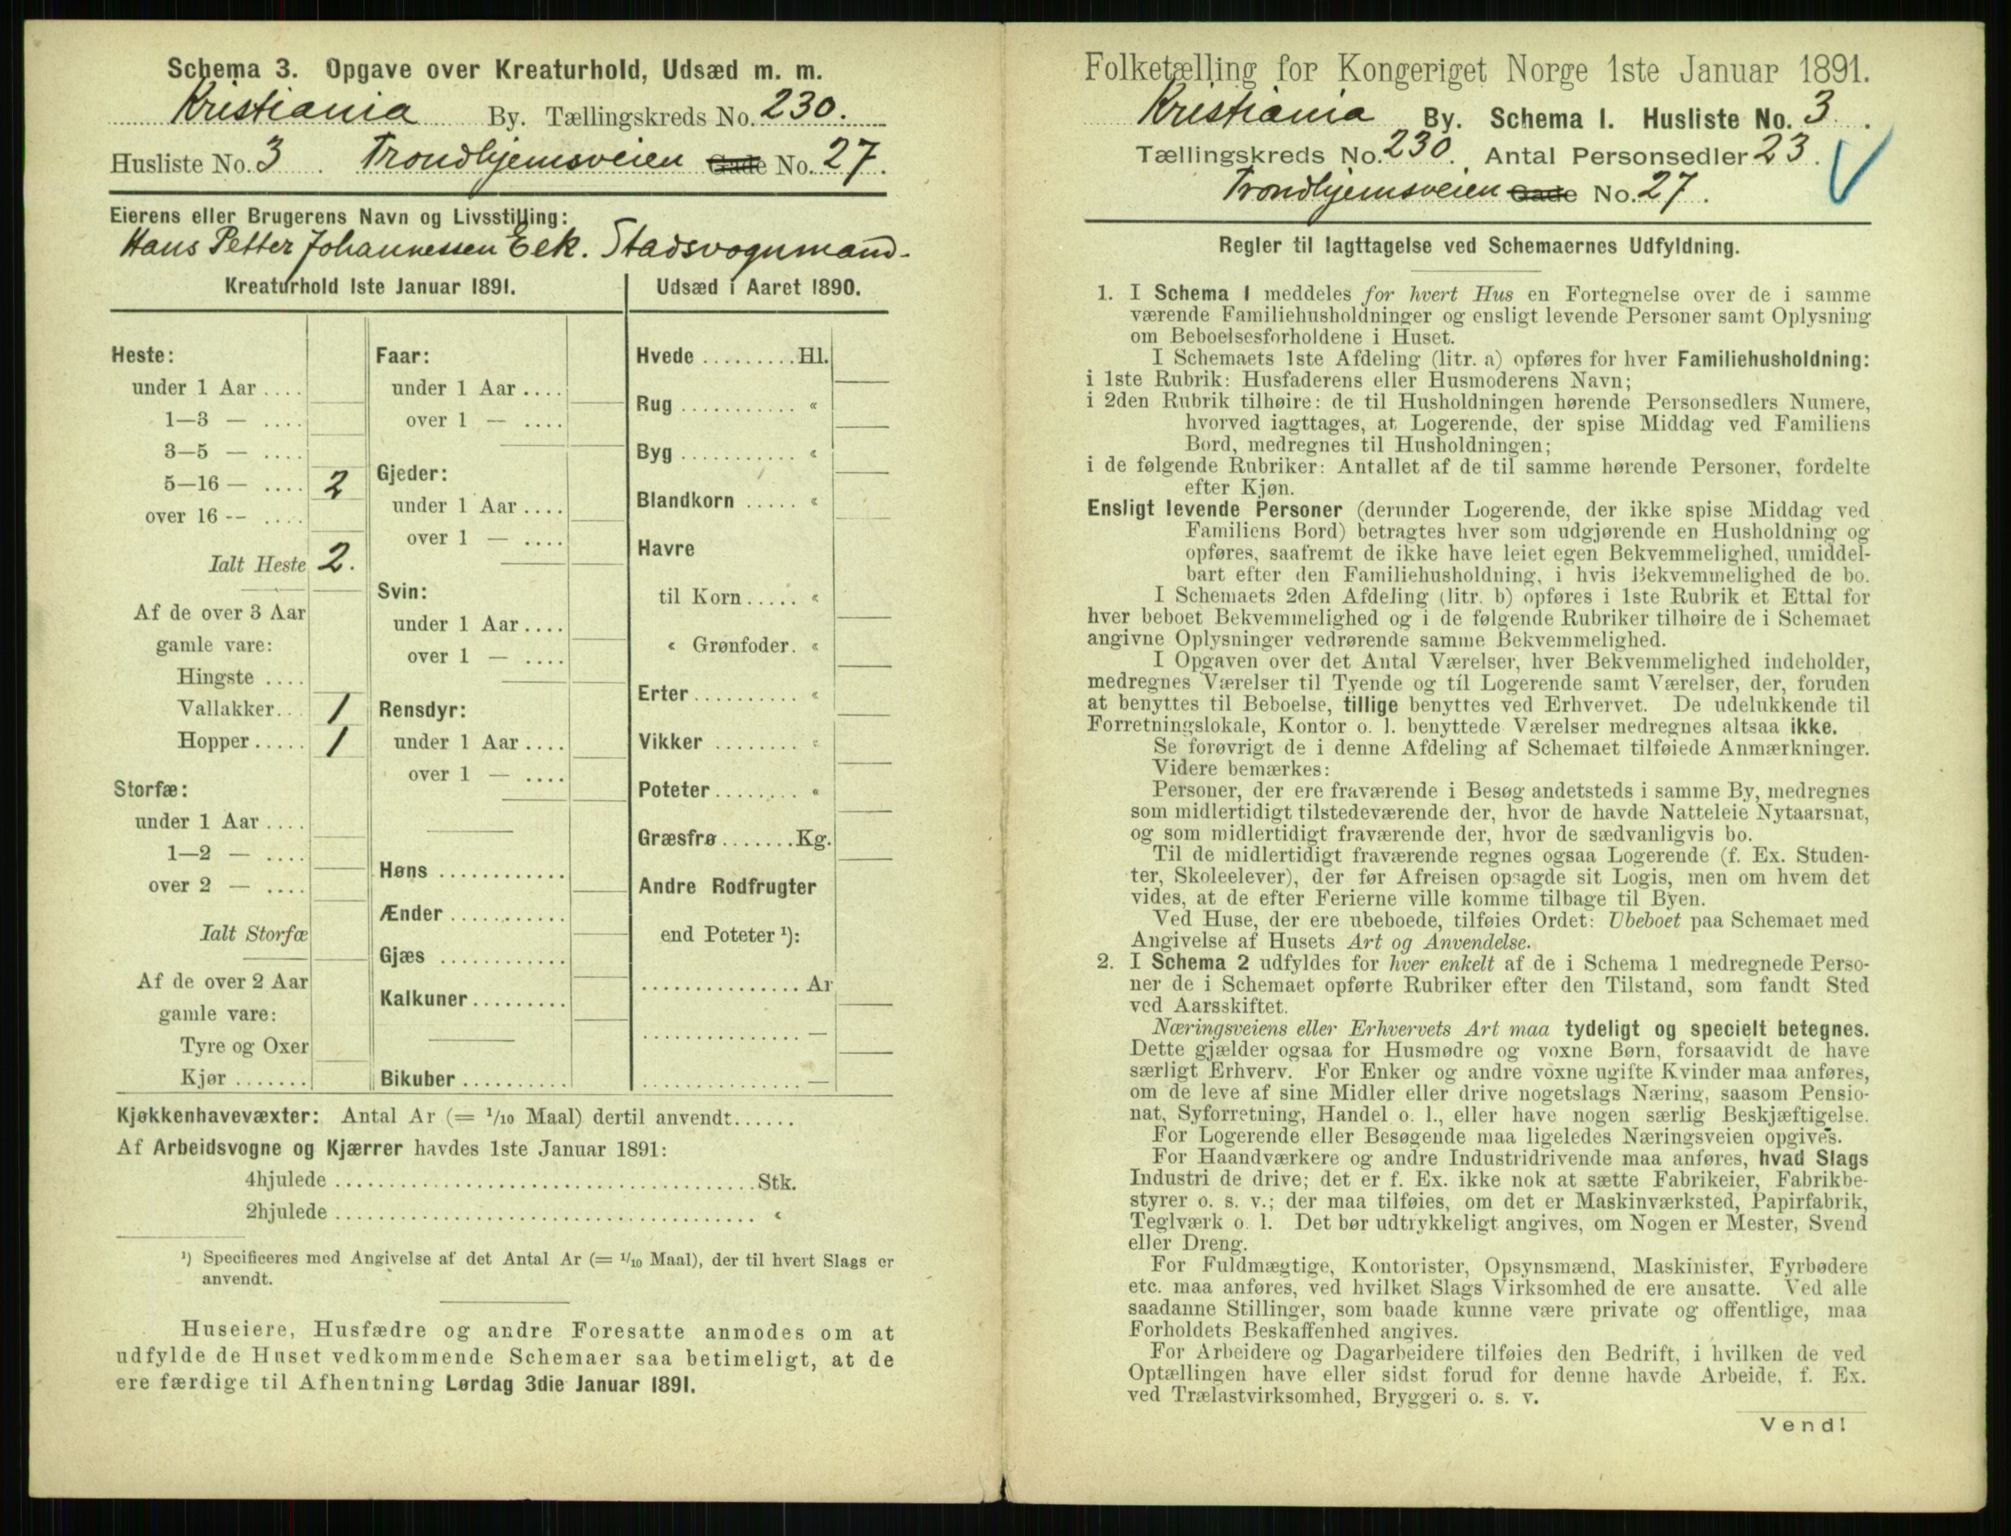 Schema 3. Opgave over Kreaturhold, Udsæd m. m.
Kristiania By. Tællingskreds No. 230.
Husliste No. 3. Trondhjemsveien Gade No. 27.
Eierens eller Brugerens Navn og Livsstilling:
Hans Petter Johannessen Eek. Stadsvognmand.
Kreaturhold 1ste Januar 1891.
Heste:
under 1 Aar ....
1—3 — ....
3—5 — ....
5—16 — .... 2
over 16 -- ....
Ialt Heste 2.
Af de over 3 Aar
gamle vare:
Hingste ....
Vallakker.. 1
Hopper ..... 1
Storfæ:
under 1 Aar ....
1—2 — ....
over 2 — ....
Ialt Storfæ
Af de over 2 Aar
gamle vare:
Tyre og Oxer
Kjør .......
Faar:
under 1 Aar ....
over 1 — ....
Gjeder:
under 1 Aar ....
over 1 — ....
Svin:
under 1 Aar ....
over 1 — ....
Rensdyr:
under 1 Aar ....
over 1 — ....
Høns ............
Ænder ...........
Gjæs ............
Kalkuner .........
Bikuber ..........
Udsæd i Aaret 1890.
Hvede ......... Hl.
Rug ........... «
Byg ........... «
Blandkorn ..... «
Havre
til Korn ..... «
« Grønfoder. «
Erter .......... «
Vikker ........ «
Poteter ........ «
Græsfrø ....... Kg.
Andre Rodfrugter
end Poteter ¹):
............... Ar
............... —
............... —
Kjøkkenhavevæxter: Antal Ar (= 1/10 Maal) dertil anvendt......
Af Arbeidsvogne og Kjærrer havdes 1ste Januar 1891:
4hjulede ....................................... Stk.
2hjulede ....................................... «
¹) Specificeres med Angivelse af det Antal Ar (= 1/10 Maal), der til hvert Slags er
anvendt.
Huseiere, Husfædre og andre Foresatte anmodes om at
udfylde de Huset vedkommende Schemaer saa betimeligt, at de
ere færdige til Afhentning Lørdag 3die Januar 1891.
Folketælling for Kongeriget Norge 1ste Januar 1891.
Kristiania By. Schema I. Husliste No. 3.
Tællingskreds No. 230. Antal Personsedler 23.
Trondhjemsveien Gade No. 27.
Regler til Iagttagelse ved Schemaernes Udfyldning.
1. I Schema 1 meddeles for hvert Hus en Fortegnelse over de i samme
værende Familiehusholdninger og ensligt levende Personer samt Oplysning
om Beboelsesforholdene i Huset.
I Schemaets 1ste Afdeling (litr. a) opføres for hver Familiehusholdning:
i 1ste Rubrik: Husfaderens eller Husmoderens Navn;
i 2den Rubrik tilhøire: de til Husholdningen hørende Personsedlers Numere,
hvorved iagttages, at Logerende, der spise Middag ved Familiens
Bord, medregnes til Husholdningen;
i de følgende Rubriker: Antallet af de til samme hørende Personer, fordelte
efter Kjøn.
Ensligt levende Personer (derunder Logerende, der ikke spise Middag ved
Familiens Bord) betragtes hver som udgjørende en Husholdning og
opføres, saafremt de ikke have leiet egen Bekvemmelighed, umiddel-
bart efter den Familiehusholdning, i hvis Bekvemmelighed de bo.
I Schemaets 2den Afdeling (litr. b) opføres i 1ste Rubrik et Ettal for
hver beboet Bekvemmelighed og i de følgende Rubriker tilhøire de i Schemaet
angivne Oplysninger vedrørende samme Bekvemmelighed.
I Opgaven over det Antal Værelser, hver Bekvemmelighed indeholder,
medregnes Værelser til Tyende og til Logerende samt Værelser, der, foruden
at benyttes til Beboelse, tillige benyttes ved Erhvervet. De udelukkende til
Forretningslokale, Kontor o. l. benyttede Værelser medregnes altsaa ikke.
Se forøvrigt de i denne Afdeling af Schemaet tilføiede Anmærkninger.
Videre bemærkes:
Personer, der ere fraværende i Besøg andetsteds i samme By, medregnes
som midlertidigt tilstedeværende der, hvor de havde Natteleie Nytaarsnat,
og som midlertidigt fraværende der, hvor de sædvanligvis bo.
Til de midlertidigt fraværende regnes ogsaa Logerende (f. Ex. Studen-
ter, Skoleelever), der før Afreisen opsagde sit Logis, men om hvem det
vides, at de efter Ferierne ville komme tilbage til Byen.
Ved Huse, der ere ubeboede, tilføies Ordet: Ubeboet paa Schemaet med
Angivelse af Husets Art og Anvendelse.
2. I Schema 2 udfyldes for hver enkelt af de i Schema 1 medregnede Perso-
ner de i Schemaet opførte Rubriker efter den Tilstand, som fandt Sted
ved Aarsskiftet.
Næringsveiens eller Erhvervets Art maa tydeligt og specielt betegnes.
Dette gjælder ogsaa for Husmødre og voxne Børn, forsaavidt de have
særligt Erhverv. For Enker og andre voxne ugifte Kvinder maa anføres,
om de leve af sine Midler eller drive nogetslags Næring, saasom Pensio-
nat, Syforretning, Handel o. l., eller have nogen særlig Beskjæftigelse.
For Logerende eller Besøgende maa ligeledes Næringsveien opgives.
For Haandværkere og andre Industridrivende maa anføres, hvad Slags
Industri de drive; det er f. Ex. ikke nok at sætte Fabrikeier, Fabrikbe-
styrer o. s. v.; der maa tilføies, om det er Maskinværksted, Papirfabrik,
Teglværk o. l. Det bør udtrykkeligt angives, om Nogen er Mester, Svend
eller Dreng.
For Fuldmægtige, Kontorister, Opsynsmænd, Maskinister, Fyrbødere
etc. maa anføres, ved hvilket Slags Virksomhed de ere ansatte. Ved alle
saadanne Stillinger, som baade kunne være private og offentlige, maa
Forholdets Beskaffenhed angives.
For Arbeidere og Dagarbeidere tilføies den Bedrift, i hvilken de ved
Optællingen have eller sidst forud for denne havde Arbeide, f. Ex.
ved Trælastvirksomhed, Bryggeri o. s. v.
Vend!